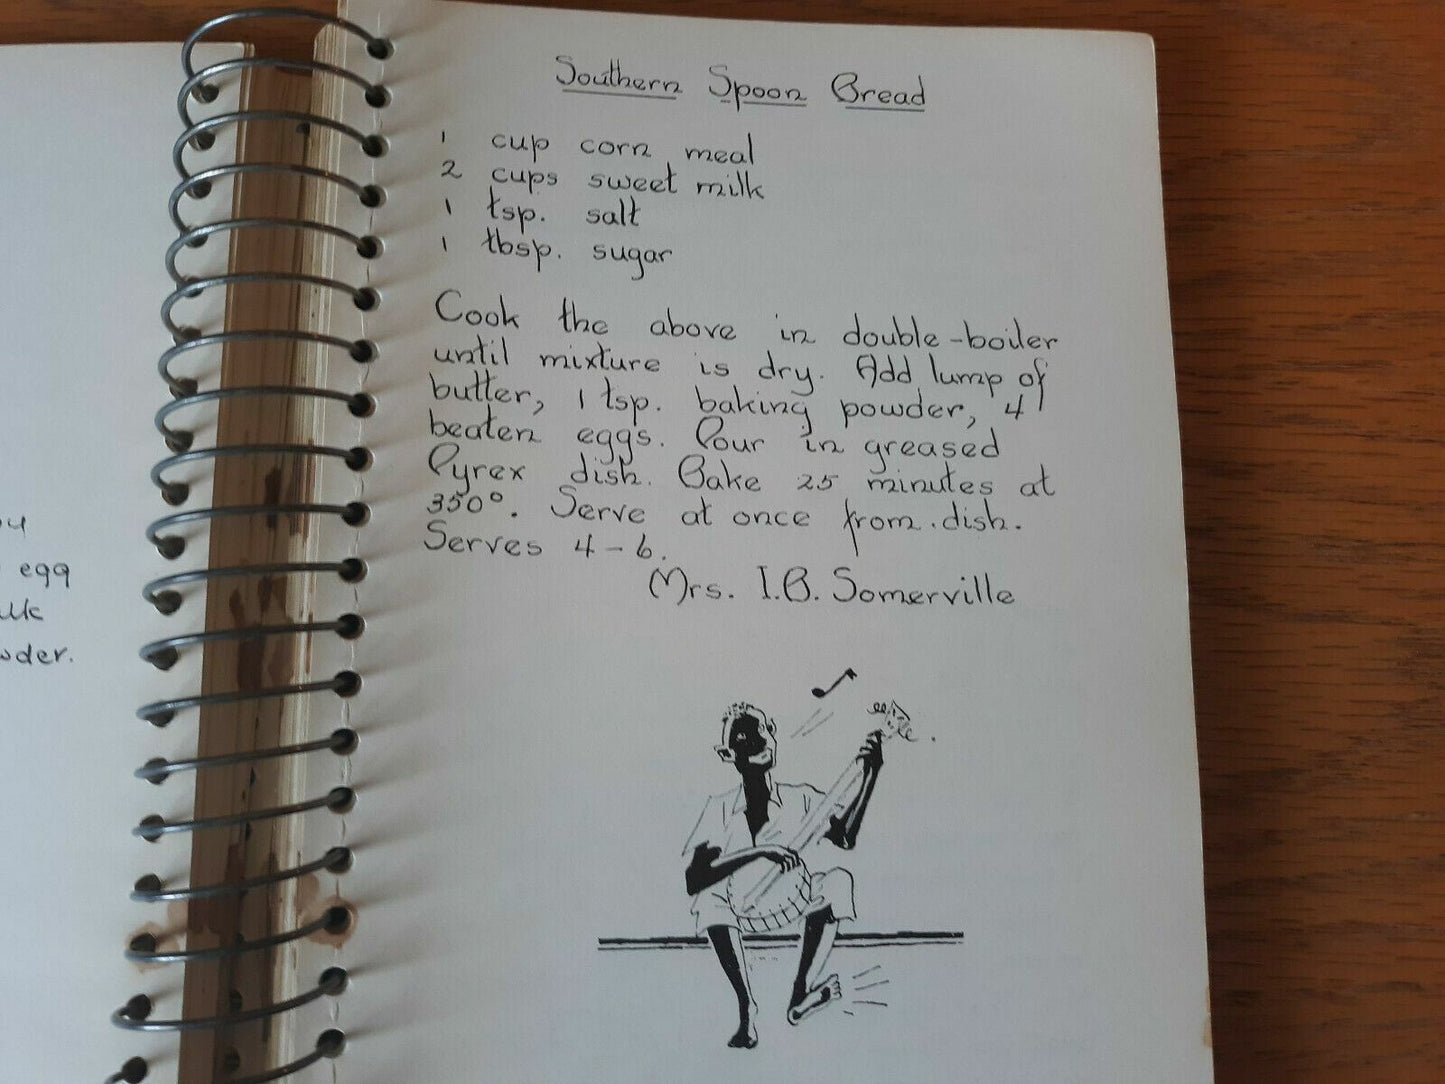 ou
egg
wder.
Southern Spoon Bread
1 cup corn meal
2 cups sweet milk
1 tsp. salt
1 tbsp. sugar
Cook the above in double-boiler
until mixture is dry. Add lump of
butter, 1 tsp. baking powder, 4
beaten eggs. Pour in greased
Pyrex dish. Bake 25 minutes at
350°. Serve at once from dish.
Serves 4-6.
Mrs. I.B. Somerville